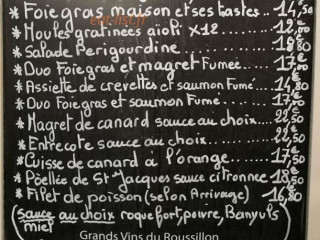 * Foie gras maison et ses tastes.. 14,50
* Moules gratinées aïoli x12 ........ 12,00
* Salade Perigourdine .......... 18,80
* Duo Foie gras et magret Fumée..... 17,50
* Assiette de crevettes et saumon Fumé.... 14,80
* Duo Foie gras et saumon Fumé..... 17,50
* Magret de canard sauce au choix....... 22,50
* Entrecote sauce au choix........ 22,50
* Cuisse de canard à l'orange..... 17,50
* Pöellée de St Jacques sauce citronnée 18,50
* Filet de poisson (selon Arrivage) 16,80
(sauce au choix roquefort, poivre, Banyuls
miel
Grands Vins du Roussillon